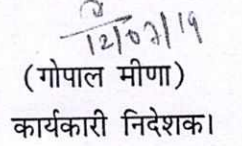 12/07/19
(गोपाल मीणा)
कार्यकारी निदेशक।